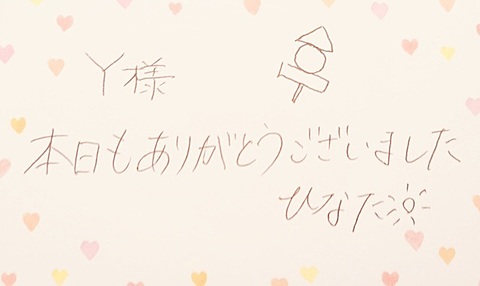 Y様
本日もありがとうございました
ひなた